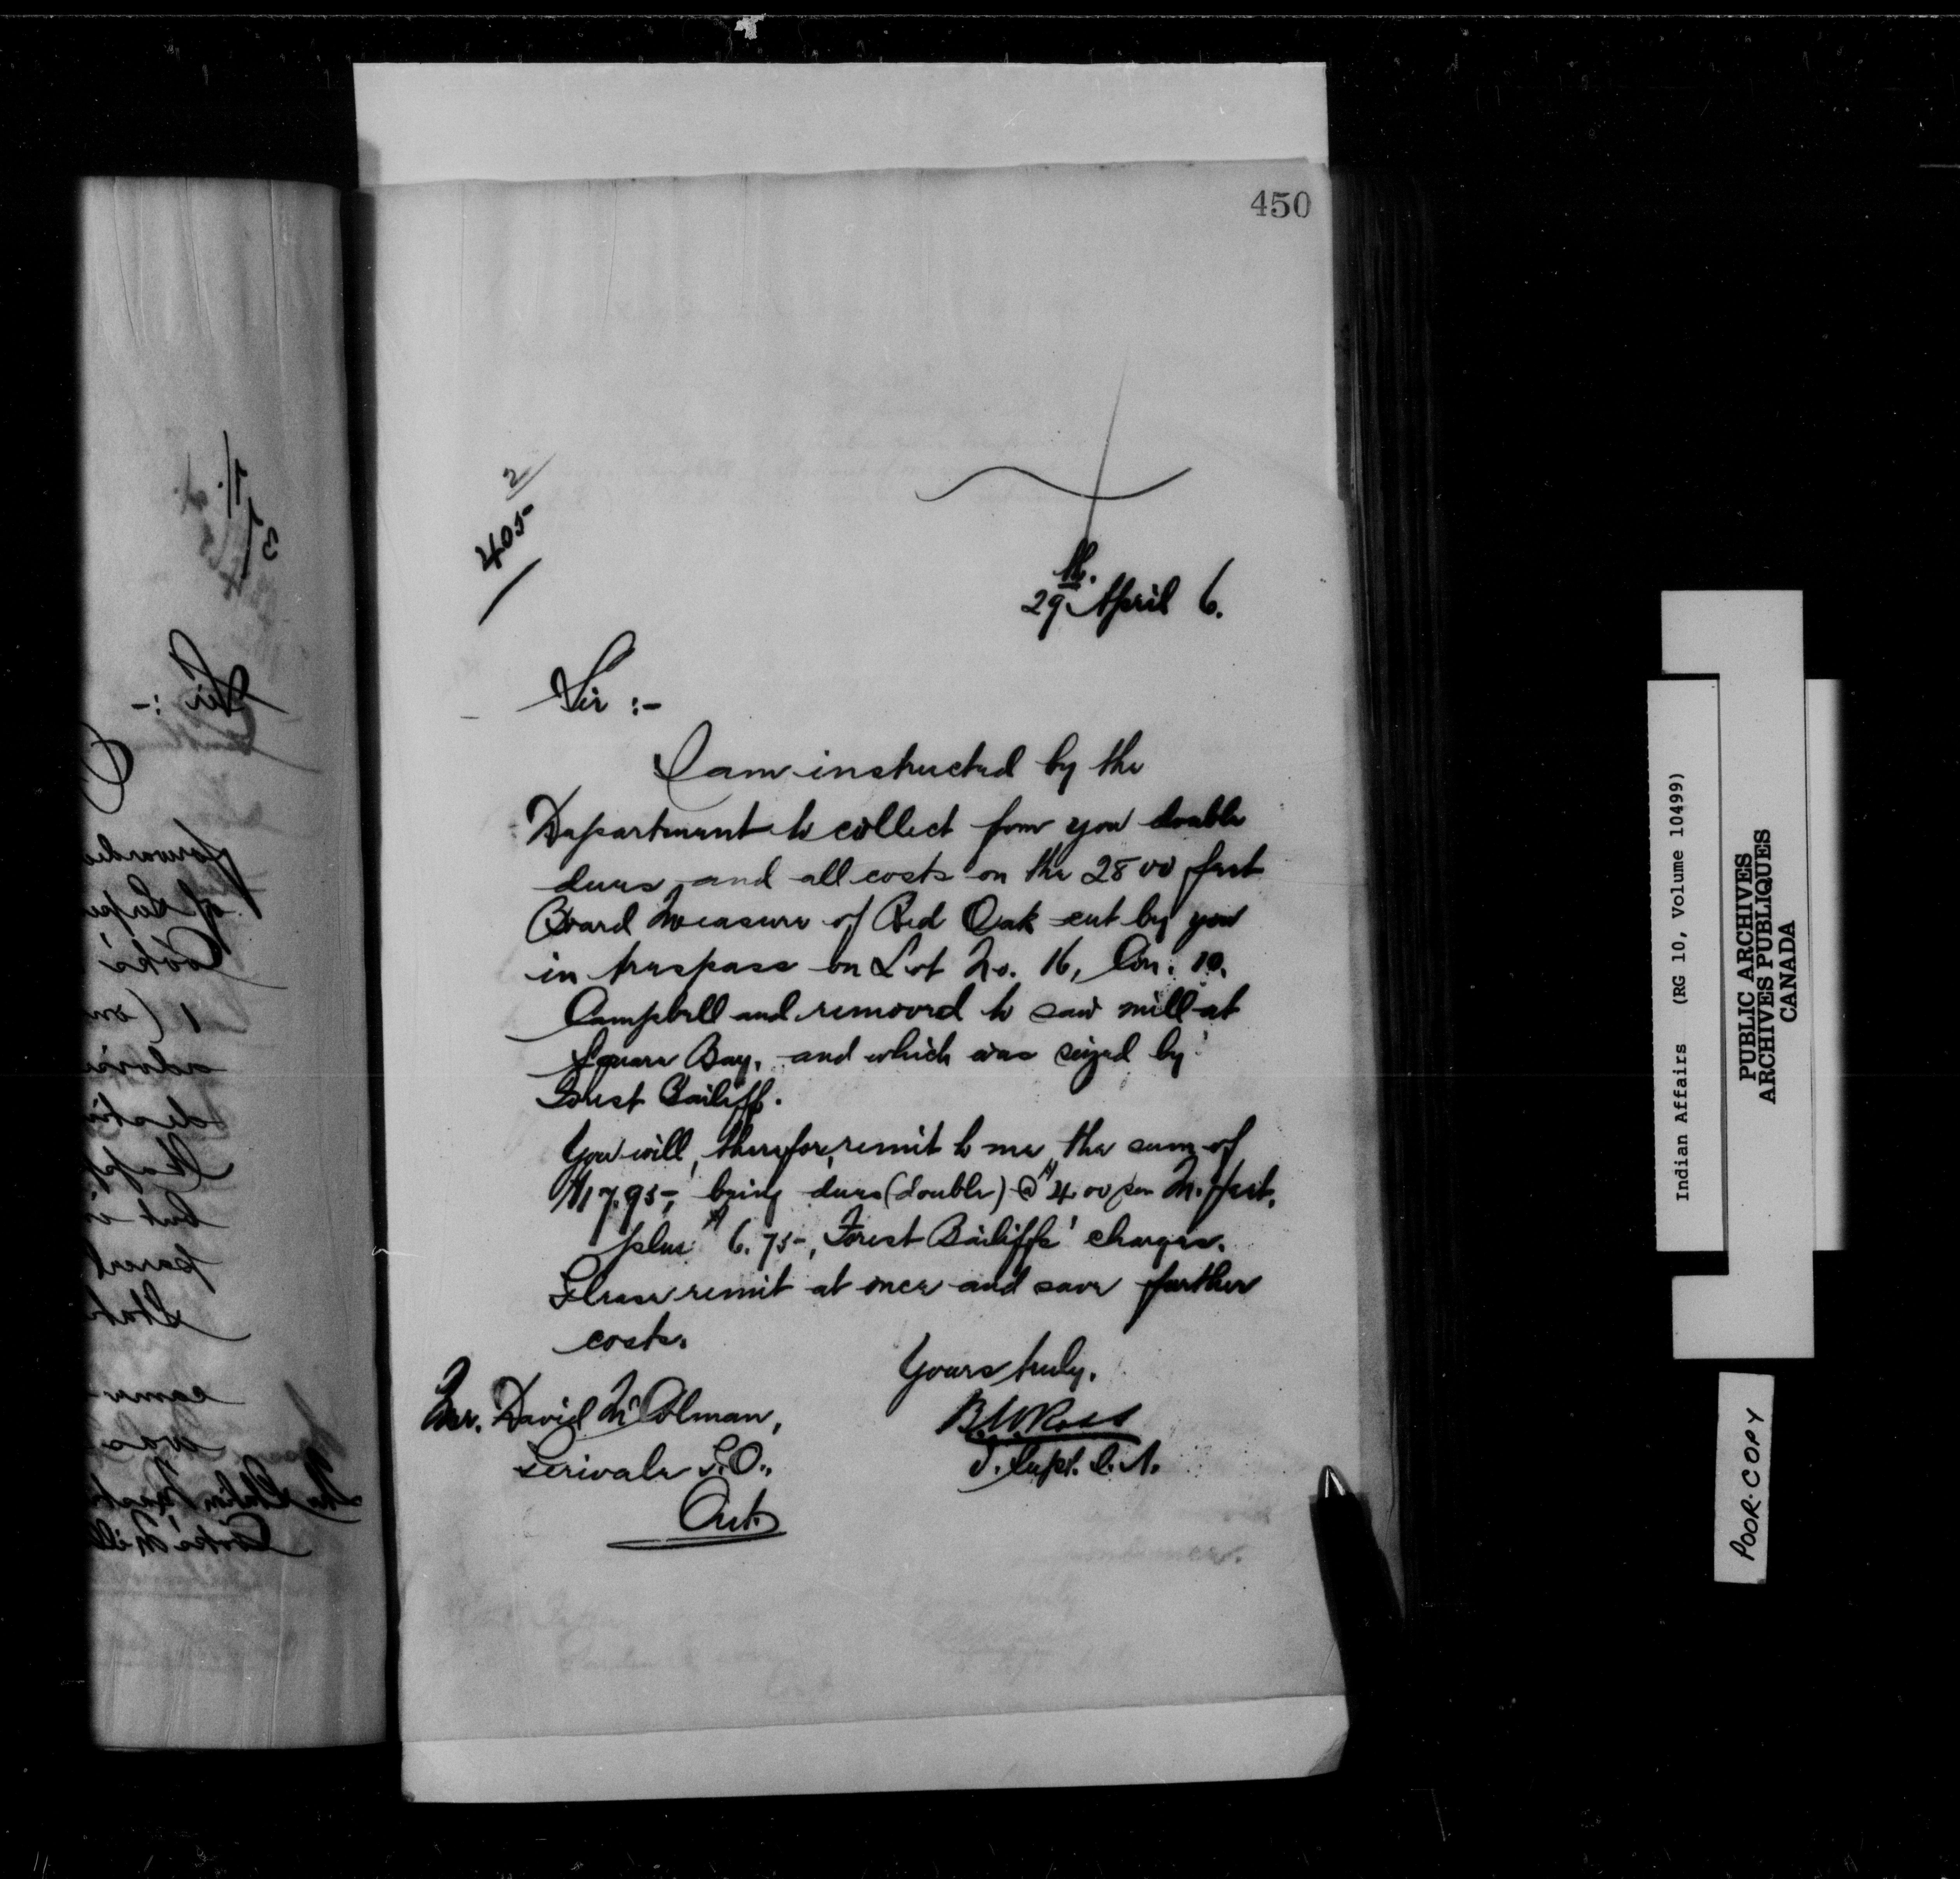 450
2
405-
29th. April 6.
Sir :-
I am instructed by the
Department to collect from you double
dues and all costs on the 2800 feet
Board Measure of Red Oak cut by you
in trespass on Lot No. 16, Con. 10.
Campbell and removed to saw mill at
Bay, and which was seized by
Forest Bailiff.
You will, therefor, remit to me the sum of
$17.95-, being dues (double) @ $4.00 per M. feet.
plus $6.75-, Forest Bailiffs' charges.
Please remit at once and save further
costs.
Yours truly,
Mr. David McColman,
B.W. Ross
Perivale P.O.,
I. Supt. I. A.
Ont.
Indian Affairs (RG 10, Volume 10499)
PUBLIC ARCHIVES
ARCHIVES PUBLIQUES
CANADA
POOR COPY